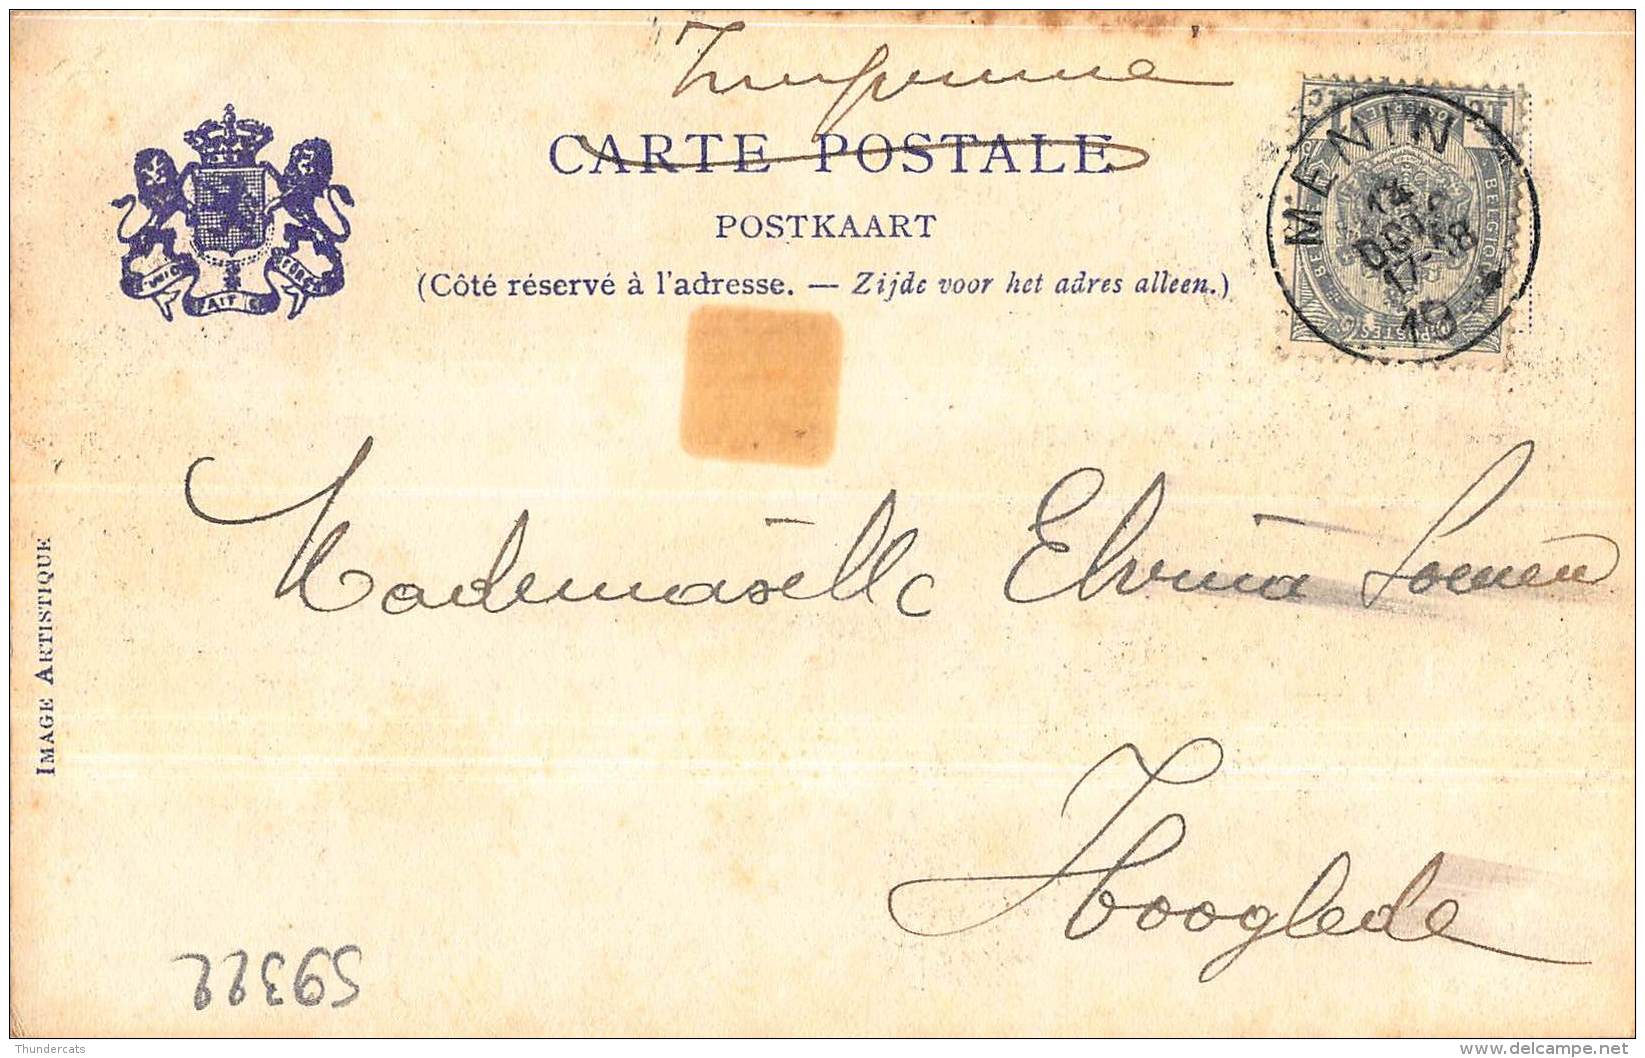 Imprimé
CARTE POSTALE
POSTKAART
(Côté réservé à l'adresse. — Zijde voor het adres alleen.)
MENIN
14
OCT
17-18
19
BELGIQUE
POSTES
FAIT
FORCE
IMAGE ARTISTIQUE
Mademoiselle Elvina
Hooglede
59322
Thundercats
delcampe.net